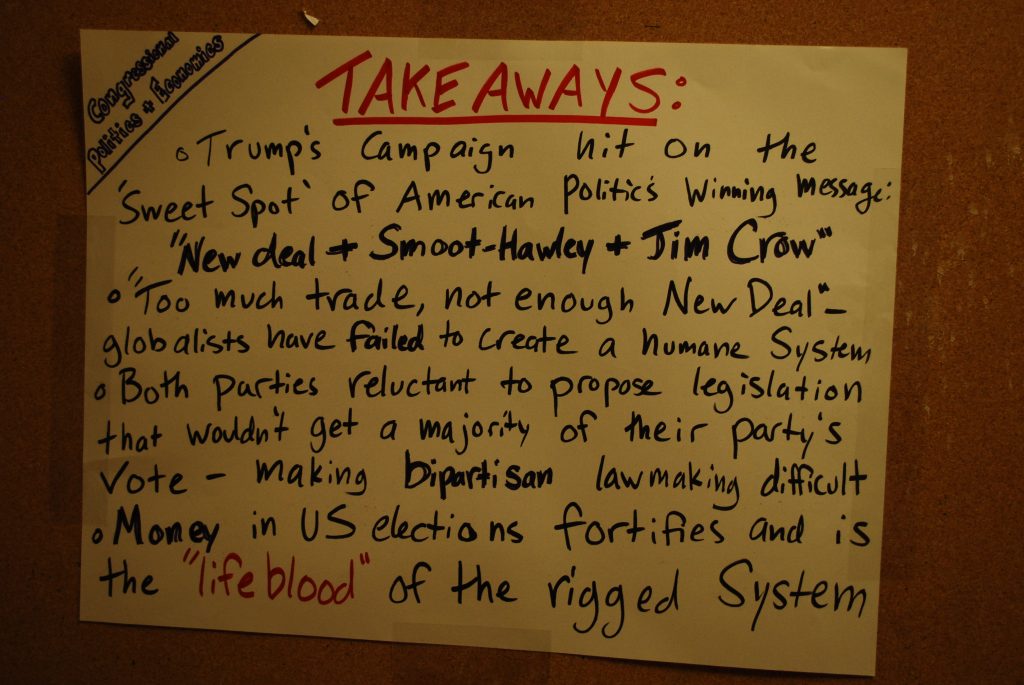 Congressional
Politics + Economics
TAKEAWAYS:
o Trump's Campaign hit on the
'Sweet Spot' of American Politic's Winning Message:
"New deal + Smoot-Hawley + Jim Crow""
o "Too much trade, not enough New Deal"-
globalists have failed to create a humane System
o Both parties reluctant to propose legislation
that wouldn't get a majority of their party's
Vote - making bipartisan lawmaking difficult
o Money in US elections fortifies and is
the "lifeblood" of the rigged System